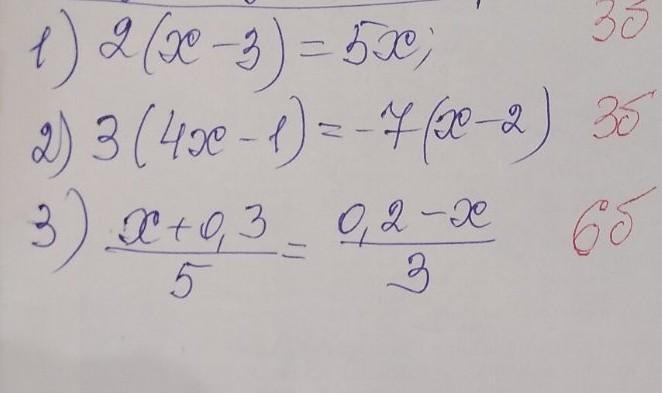 1) 2(x-3)=5x; 3б
2) 3(4x-1)=-7(x-2) 3б
3) \frac{x+0,3}{5} = \frac{0,2-x}{3} 6б